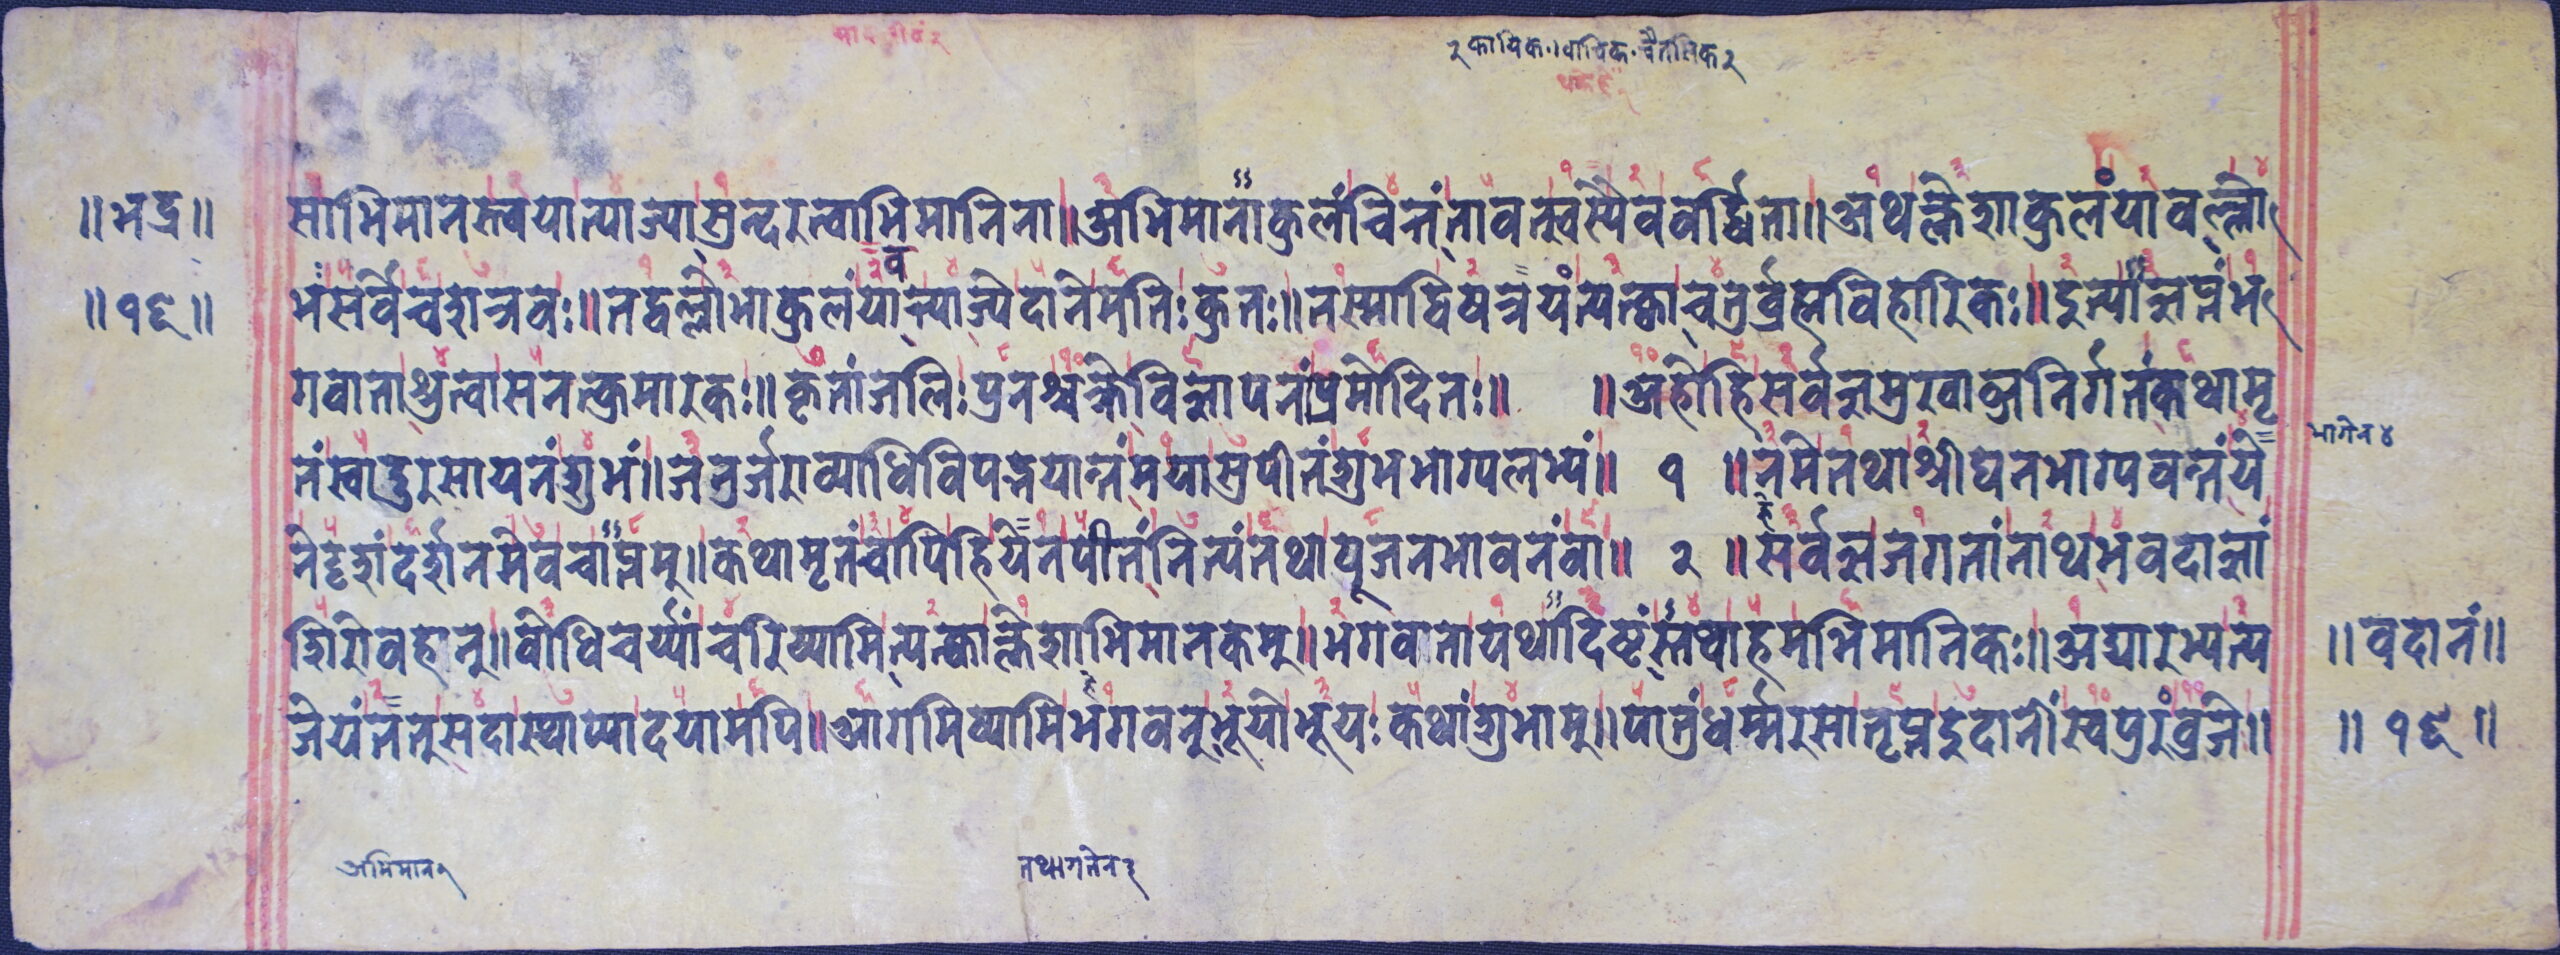 २ कायिक । वाचिक । चैतसिक २
॥ भद्र ॥
साभिमानस्त्वया त्याज्या सुन्दरुत्वाभिमानिना ॥ अभिमानाकुलं चित्तं तावत्तवस्यैव वर्द्धिता ॥ अथ क्लेशाकुलं यावल्लो
॥ १६ ॥
भं सर्वे च शत्रवः ॥ तद्वल्लोभाकुलं यावत्त्याज्येदानेमेतिः कुतः ॥ तस्माद्विषत्रयं त्यक्त्वा चतुर्व्रह्मविहारिकः ॥ इत्याज्ञप्तं भ
गवाता श्रुत्वा सनत्कुमारकः ॥ कृतांजलिः पुनश्चक्रे विज्ञापनं प्रमोदितः ॥ ॥ अहो हि सर्वज्ञमुखाब्जनिर्गतं कथामृ
तं स्वादुरसायनं शुभं ॥ जनुर्जराव्याधिविपद्भयान्तं मया सुपीतं शुभभाग्यलभ्यं ॥ १ ॥ न मे तथा श्रीघनभाग्यवन्तं ये
भागेन ४
नेदृशं दर्शनमेव चाप्तम् ॥ कथामृतं चापि हि येन पीतं नित्यं तथा पूजनभावनं वा ॥ २ ॥ सर्वज्ञ जगतां नाथ भवदाज्ञां
शिरोवहान् ॥ वोधिचर्य्यां चरिष्यामि त्यक्त्वा क्लेशाभिमानकम् ॥ भगवाता यथादिष्टं स्तथाहमभिमानिकः ॥ अद्यारभ्य त्य
॥ वदानं ॥
जेयं तत्तु सदा स्थाप्या दयामपि ॥ आगमिष्यामि भगवन् भूयो भूयः कथां शुभाम् ॥ पातुं धर्म्मरसातृप्त इदानीं स्वपुरं व्रजे ॥
॥ १६ ॥
अभिमान १
तथागतेन ३